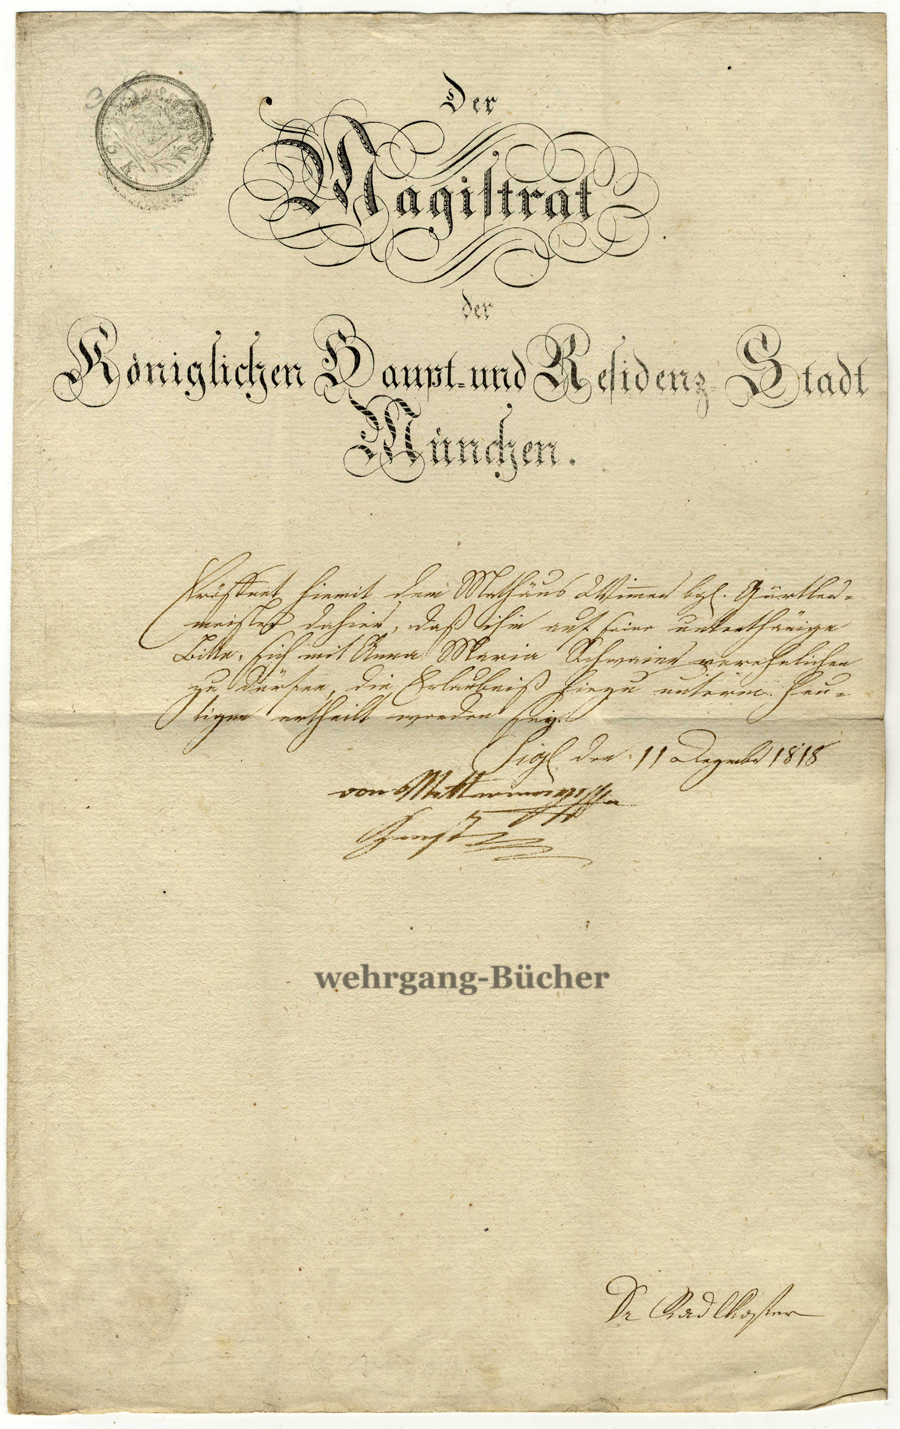 Der
Magistrat
der
Königlichen Haupt- und Residenz-Stadt
München.
Eröffnet hiemit dem Mathäus Wimmer bgl. Gürtler-
meister dahier, daß ihm auf seine unterthänige
Bitte, sich mit Anna Maria Schwaiger verehelichen
zu dürfen, die Erlaubniß hiezu unterm heu-
tigen ertheilt worden sey.
Sigl. den 11 Dezember 1818
von Mittermayr
wehrgang-Bücher
Dr Radlkofer